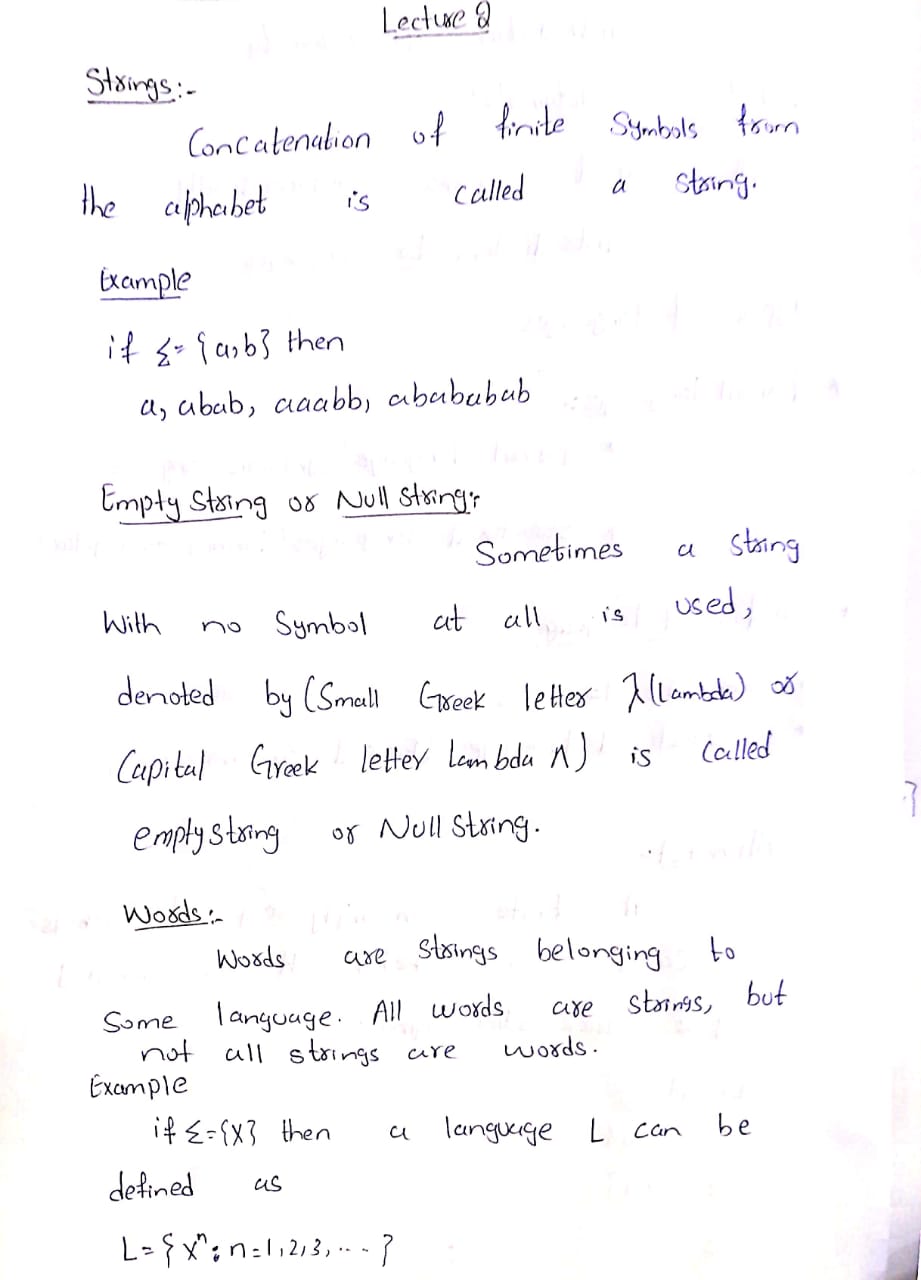 Lecture 2
Strings:-
Concatenation of finite Symbols from
the alphabet is called a string.
Example
if Σ= {a,b} then
a, abab, aaabb, abababab
Empty String or Null String:
Sometimes a string
With no Symbol at all is used,
denoted by (Small Greek letter λ(Lambda) or
Capital Greek letter Lambda Λ) is Called
empty string or Null String.
Words:-
Words are Strings belonging to
Some language. All words are strings, but
not all strings are words.
Example
if Σ={X} then a language L can be
defined as
L={xⁿ: n=1,2,3,....}